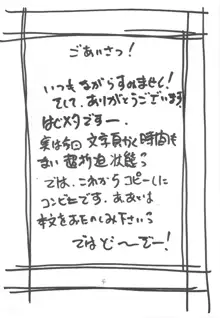 ごあいさつ！
いつもながらすみません！
そして、ありがとうございます
はじメタですー。
実は今日文字書く時間も
ない 状態っ
では、これからコピーしに
コンビニです。ああ
本文をおたのしみ下さいっ
ではど〜ぞー！